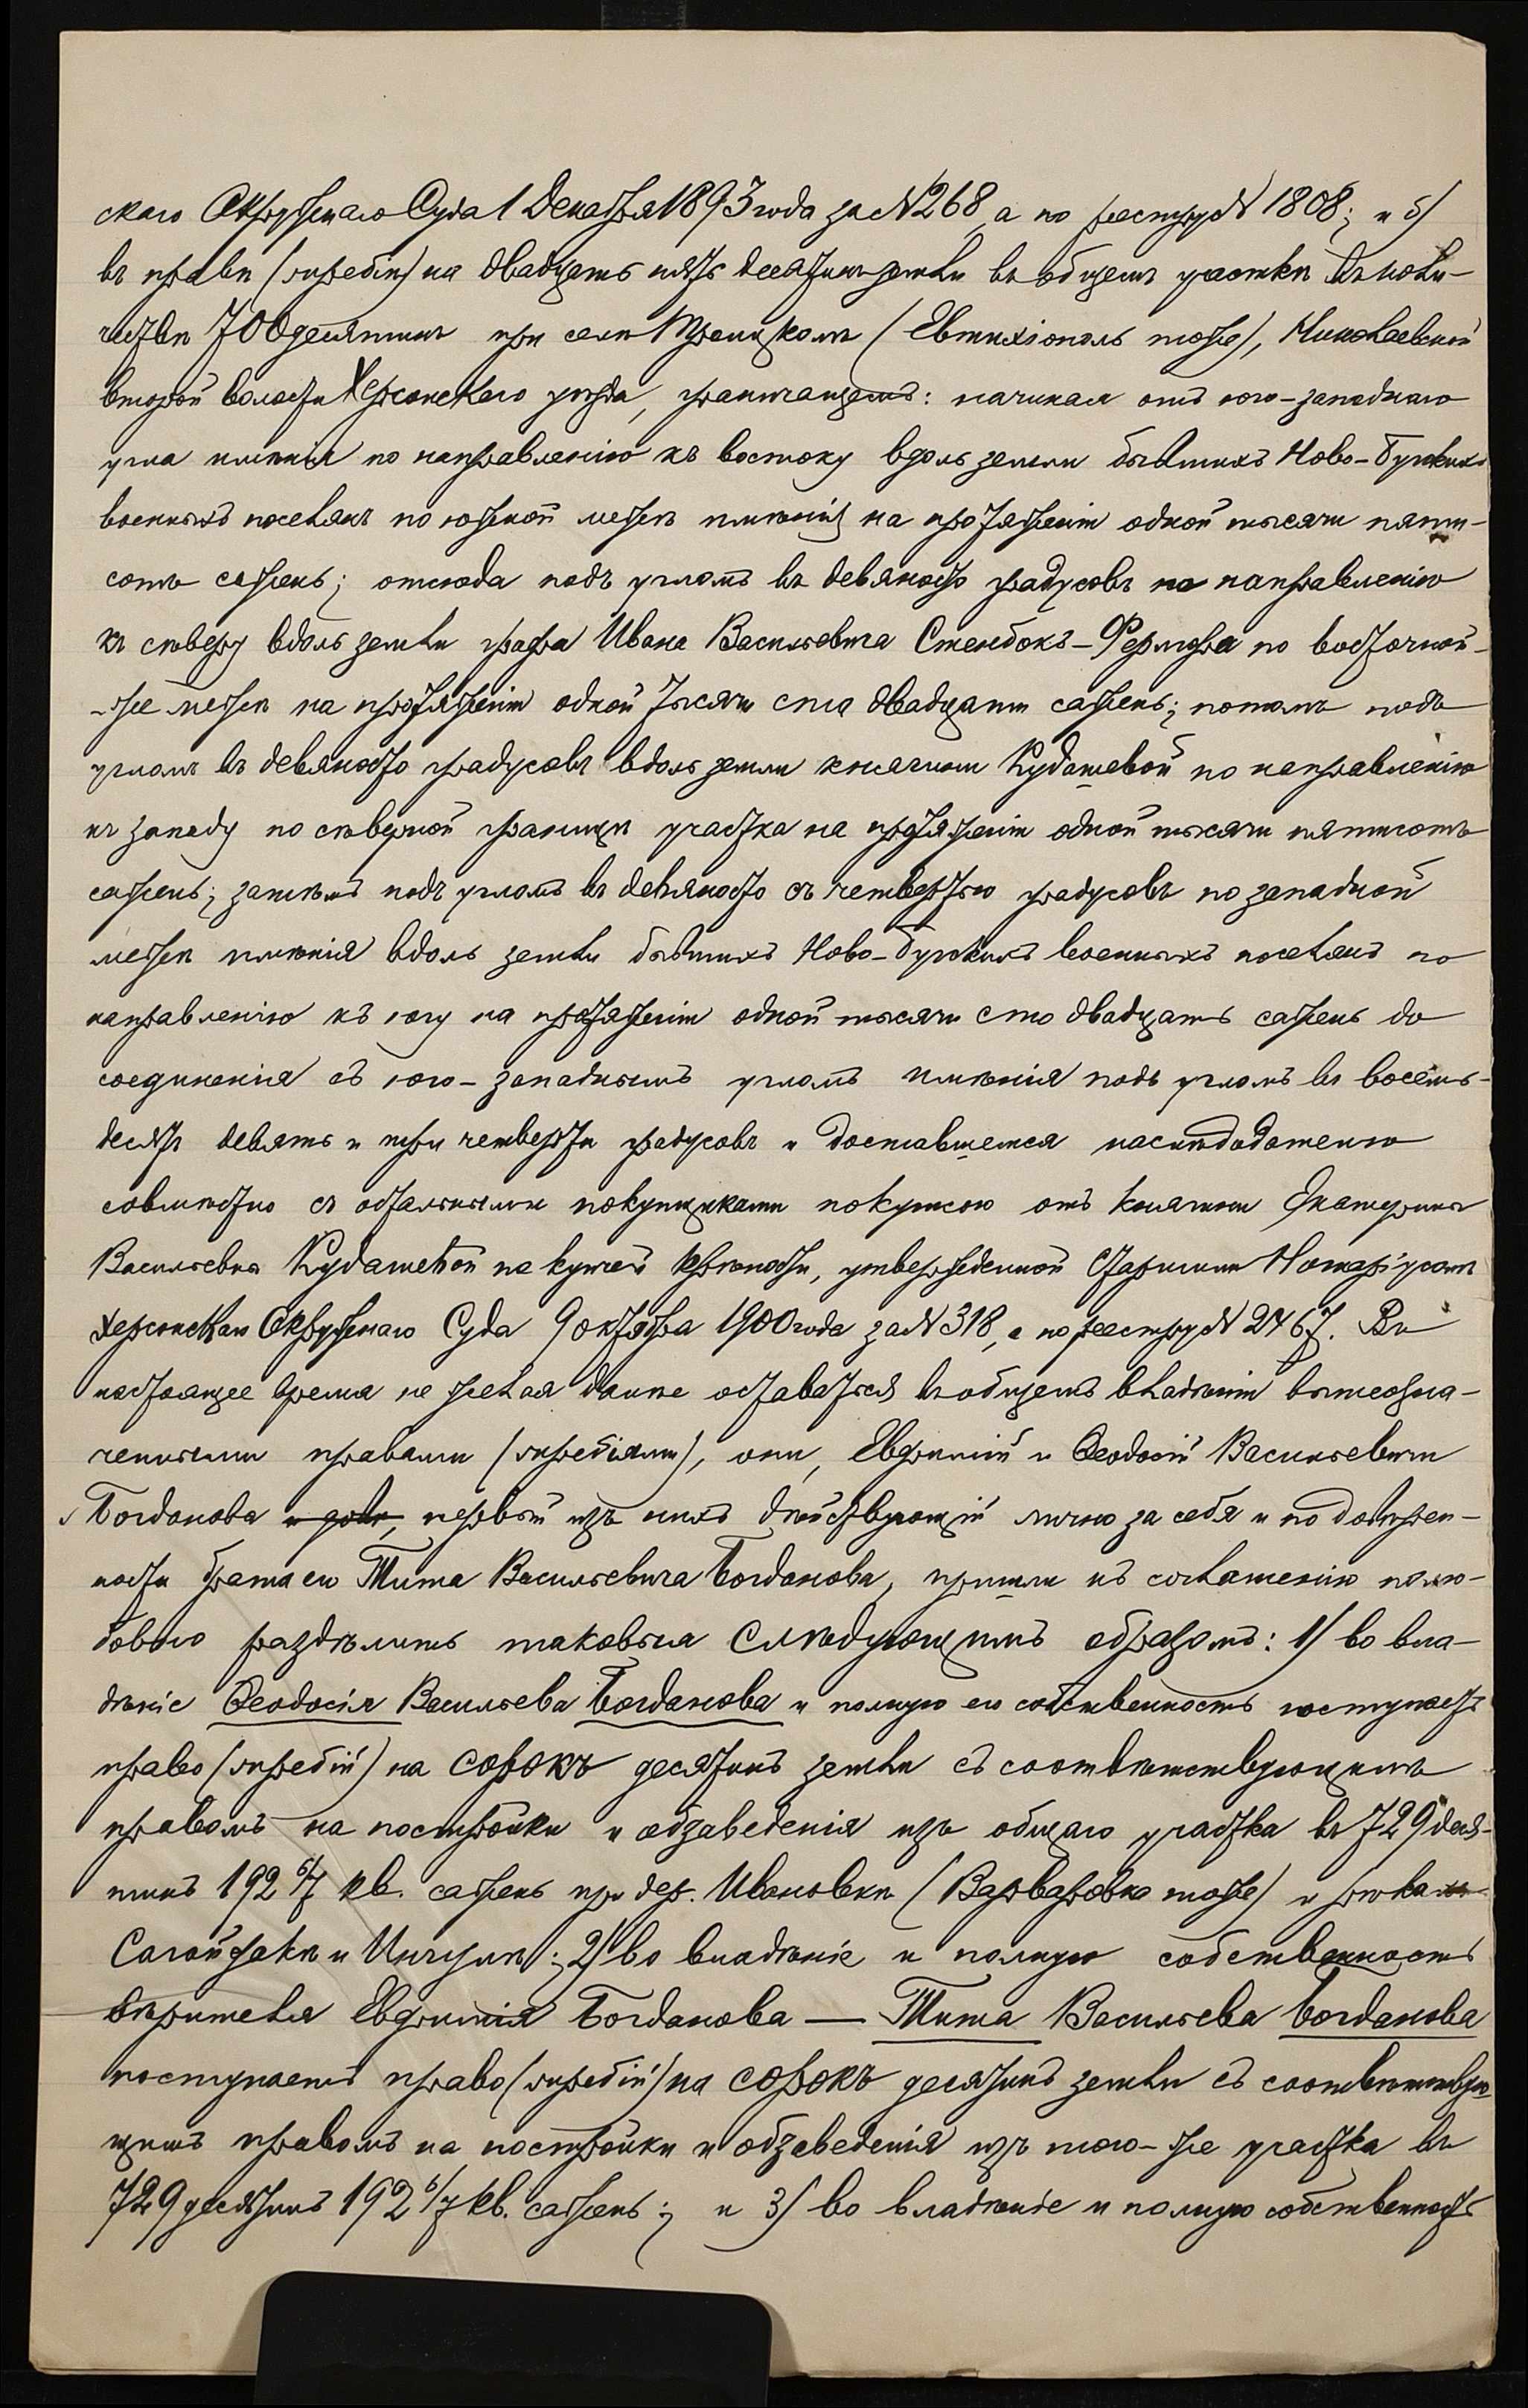 скаго Окружнаго Суда 1 Декабря 1893 года за №268, а по реестру № 1808; и б)
въ правѣ (жребіи) на двадцать пять десятинъ земли въ общемъ участкѣ въ коли-
чествѣ 700 десятинъ при селѣ Троицкомъ (Евтихіополь тоже), Николаевской
второй волости Херсонскаго уѣзда, граничащемъ: начиная отъ юго-западнаго
угла имѣнія по направленію къ востоку вдоль земли бывшихъ Ново-Бугскихъ
военныхъ поселянъ по южной межѣ имѣнія на протяженіи одной тысячи пяти-
сотъ сажень; отсюда подъ угломъ въ девяносто градусовъ по направленію
къ сѣверу вдоль земли графа Ивана Васильевича Стенбокъ-Фермора по восточной-
-же межѣ на протяженіи одной тысячи ста двадцати сажень; потомъ подъ
угломъ въ девяносто градусовъ вдоль земли княгини Кудашевой по направленію
къ западу по сѣверной границѣ участка на протяженіи одной тысячи пятисотъ
сажень; затѣмъ подъ угломъ въ девяносто съ четвертью градусовъ по западной
межѣ имѣнія вдоль земли бывшихъ Ново-Бугскихъ военныхъ поселянъ по
направленію къ югу на протяженіи одной тысячи сто двадцать сажень до
соединенія съ юго-западнымъ угломъ имѣнія подъ угломъ въ восемь-
десятъ девять и три четверти градусовъ и доставшемся наслѣдодателю
совмѣстно съ остальными покупщиками покупкою отъ княгини Екатерины
Васильевны Кудашевой по купчей крѣпости, утвержденной Старшимъ Нотаріусомъ
Херсонскаго Окружнаго Суда 9 октября 1900 года за № 318, а по реестру № 2467. Въ
настоящее время не желая далѣе оставаться въ общемъ владѣніи вышеозна-
ченными правами (жребіями), они, Евфимій и Ѳеодосій Васильевичи
Богдановы и довѣ, первый изъ нихъ дѣйствующій лично за себя и по довѣрен-
ности брата его Тита Васильевича Богданова, пришли къ соглашенію полю-
бовно раздѣлить таковыя слѣдующимъ образомъ: 1) во вла-
дѣніе Ѳеодосія Васильева Богданова и полную его собственность поступаетъ
право (жребій) на сорокъ десятинъ земли съ соотвѣтствующимъ
правомъ на постройки и обзаведенія изъ общаго участка въ 729 деся-
тинъ 192 6/7 кв. сажень при дер. Ивановкѣ (Варваровка тоже) и рѣкахъ
Сагайдакѣ и Ингулѣ; 2) во владѣніе и полную собственность
вѣрителя Евфимія Богданова — Тита Васильева Богданова
поступаетъ право (жребій) на сорокъ десятинъ земли съ соотвѣтствую-
щимъ правомъ на постройки и обзаведенія изъ того-же участка въ
729 десятинъ 192 6/7 кв. сажень; и 3) во владѣніе и полную собственность